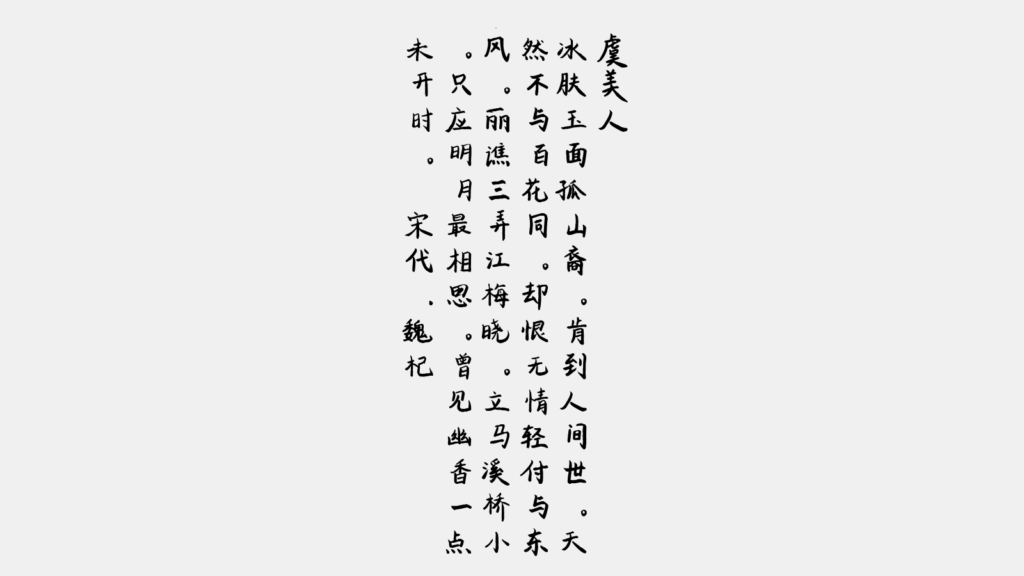 虞美人
冰肤玉面孤山裔。肯到人间世。天
然不与百花同。却恨无情轻付与东
风。丽谯三弄江梅晓。立马溪桥小
。只应明月最相思。曾见幽香一点
未开时。宋代.魏杞